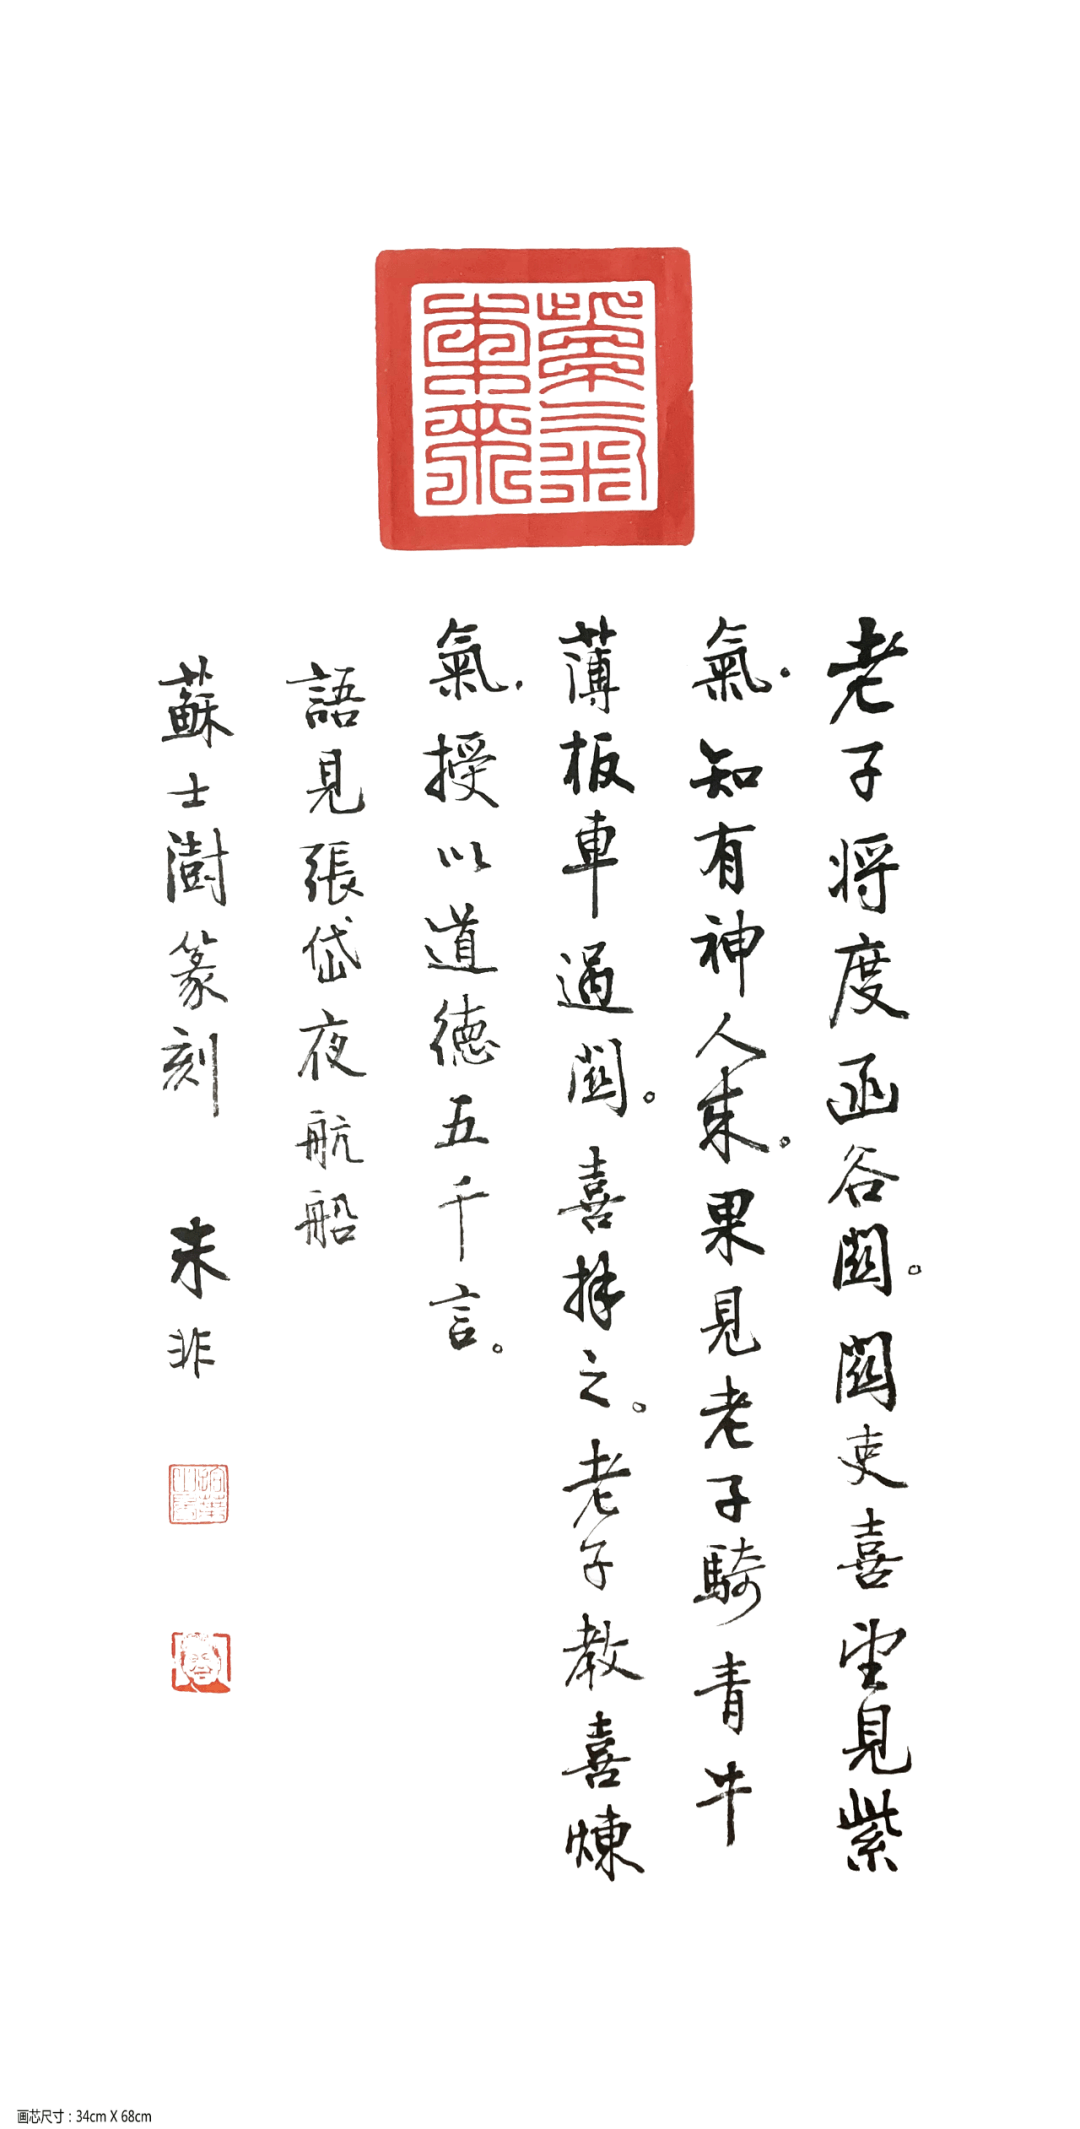 紫氣東來
老子将度函谷關。關吏喜望見紫
氣.知有神人来。果見老子騎青牛
薄板車過關。喜拜之。老子教喜煉
氣.授以道德五千言。
語見張岱夜航船
蘇士澍篆刻 朱非
画芯尺寸：34cm X 68cm